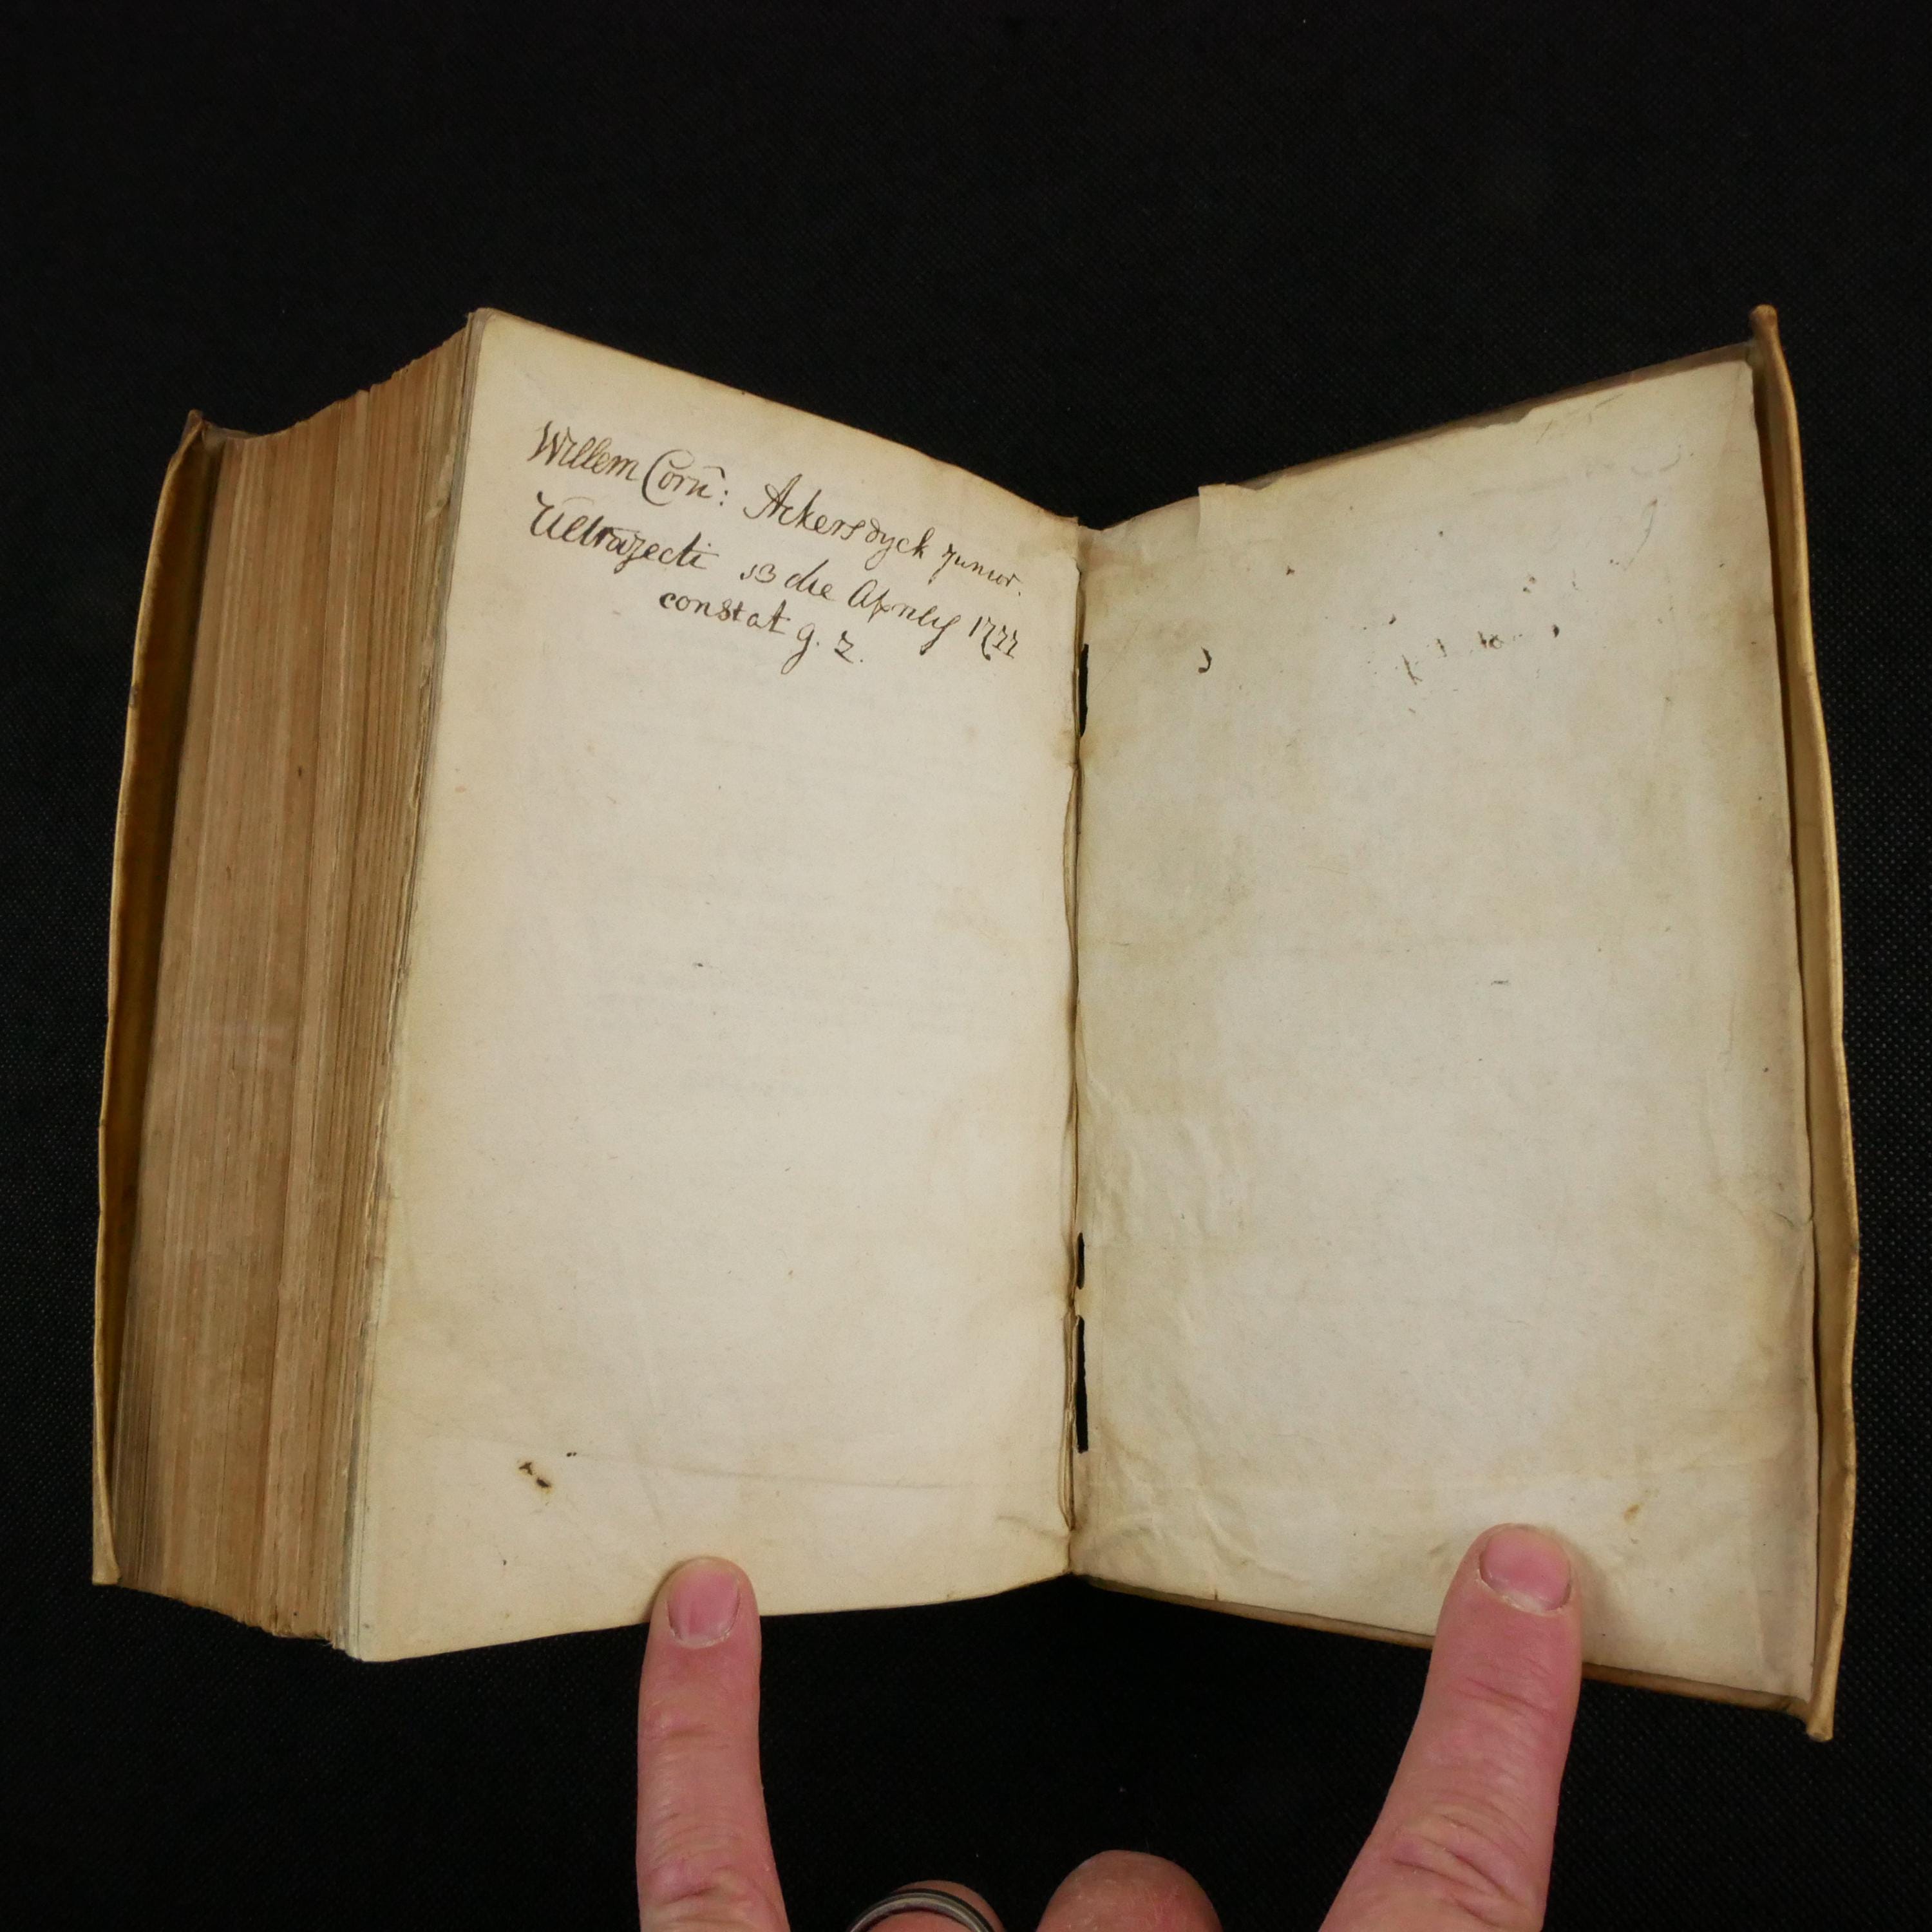 Willem Corn̄: Ackersdyck Junior.
Ultrajecti 13 die Aprily 1777
constat g. 2.